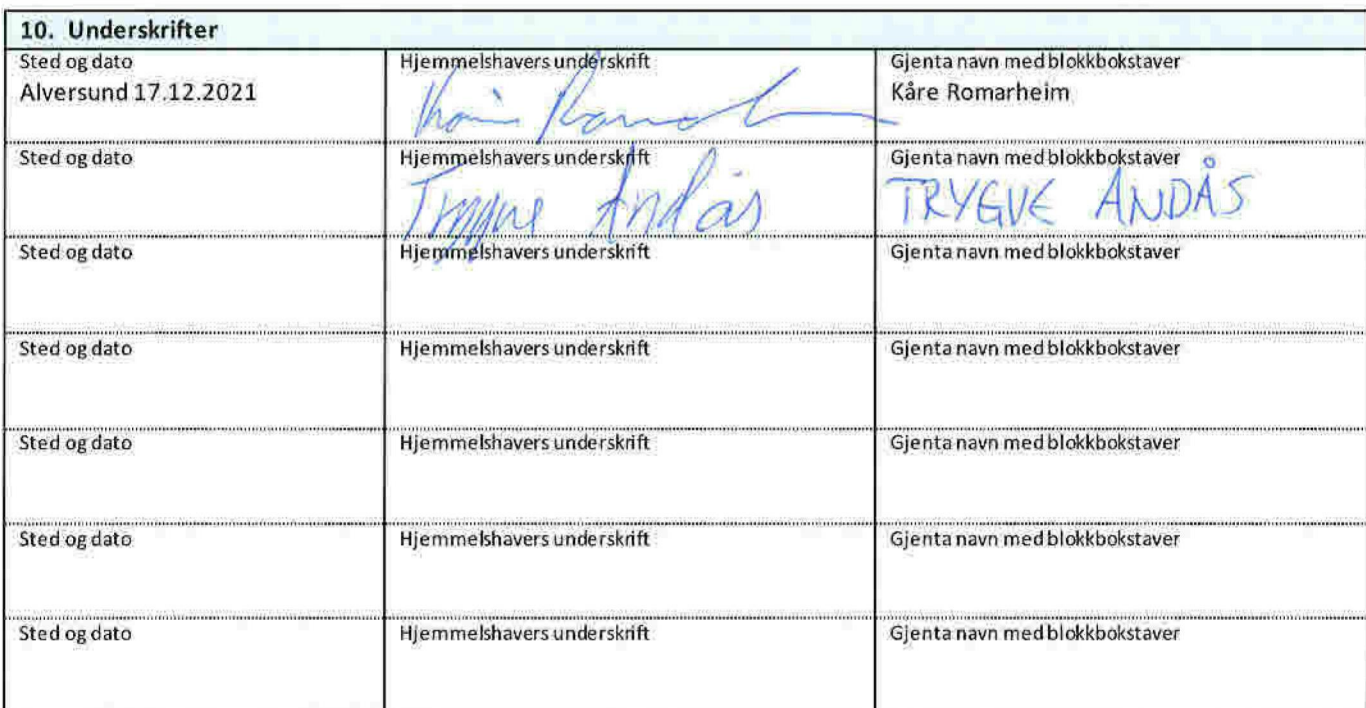 10. Underskrifter
Sted og dato
Alversund 17.12.2021
Hjemmelshavers underskrift
Gjenta navn med blokkbokstaver
Kåre Romarheim
Sted og dato
Hjemmelshavers underskrift
Trygve Andås
Gjenta navn med blokkbokstaver
TRYGVE ANDÅS
Sted og dato
Hjemmelshavers underskrift
Gjenta navn med blokkbokstaver
Sted og dato
Hjemmelshavers underskrift
Gjenta navn med blokkbokstaver
Sted og dato
Hjemmelshavers underskrift
Gjenta navn med blokkbokstaver
Sted og dato
Hjemmelshavers underskrift
Gjenta navn med blokkbokstaver
Sted og dato
Hjemmelshavers underskrift
Gjenta navn med blokkbokstaver